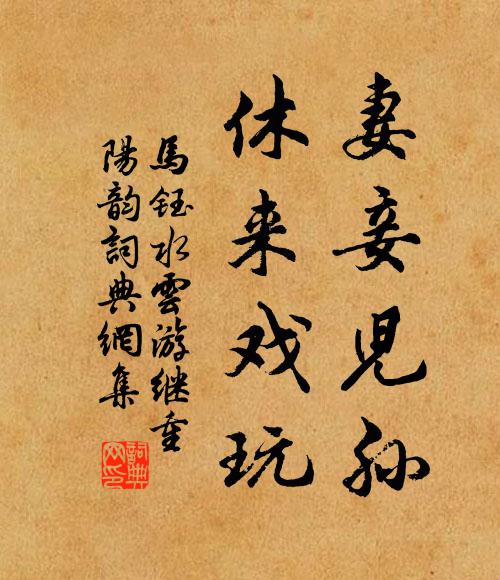 妻妾児孙
休来戏玩
馬鈺水雲游继重
陽韵詞典網集
詞典网印